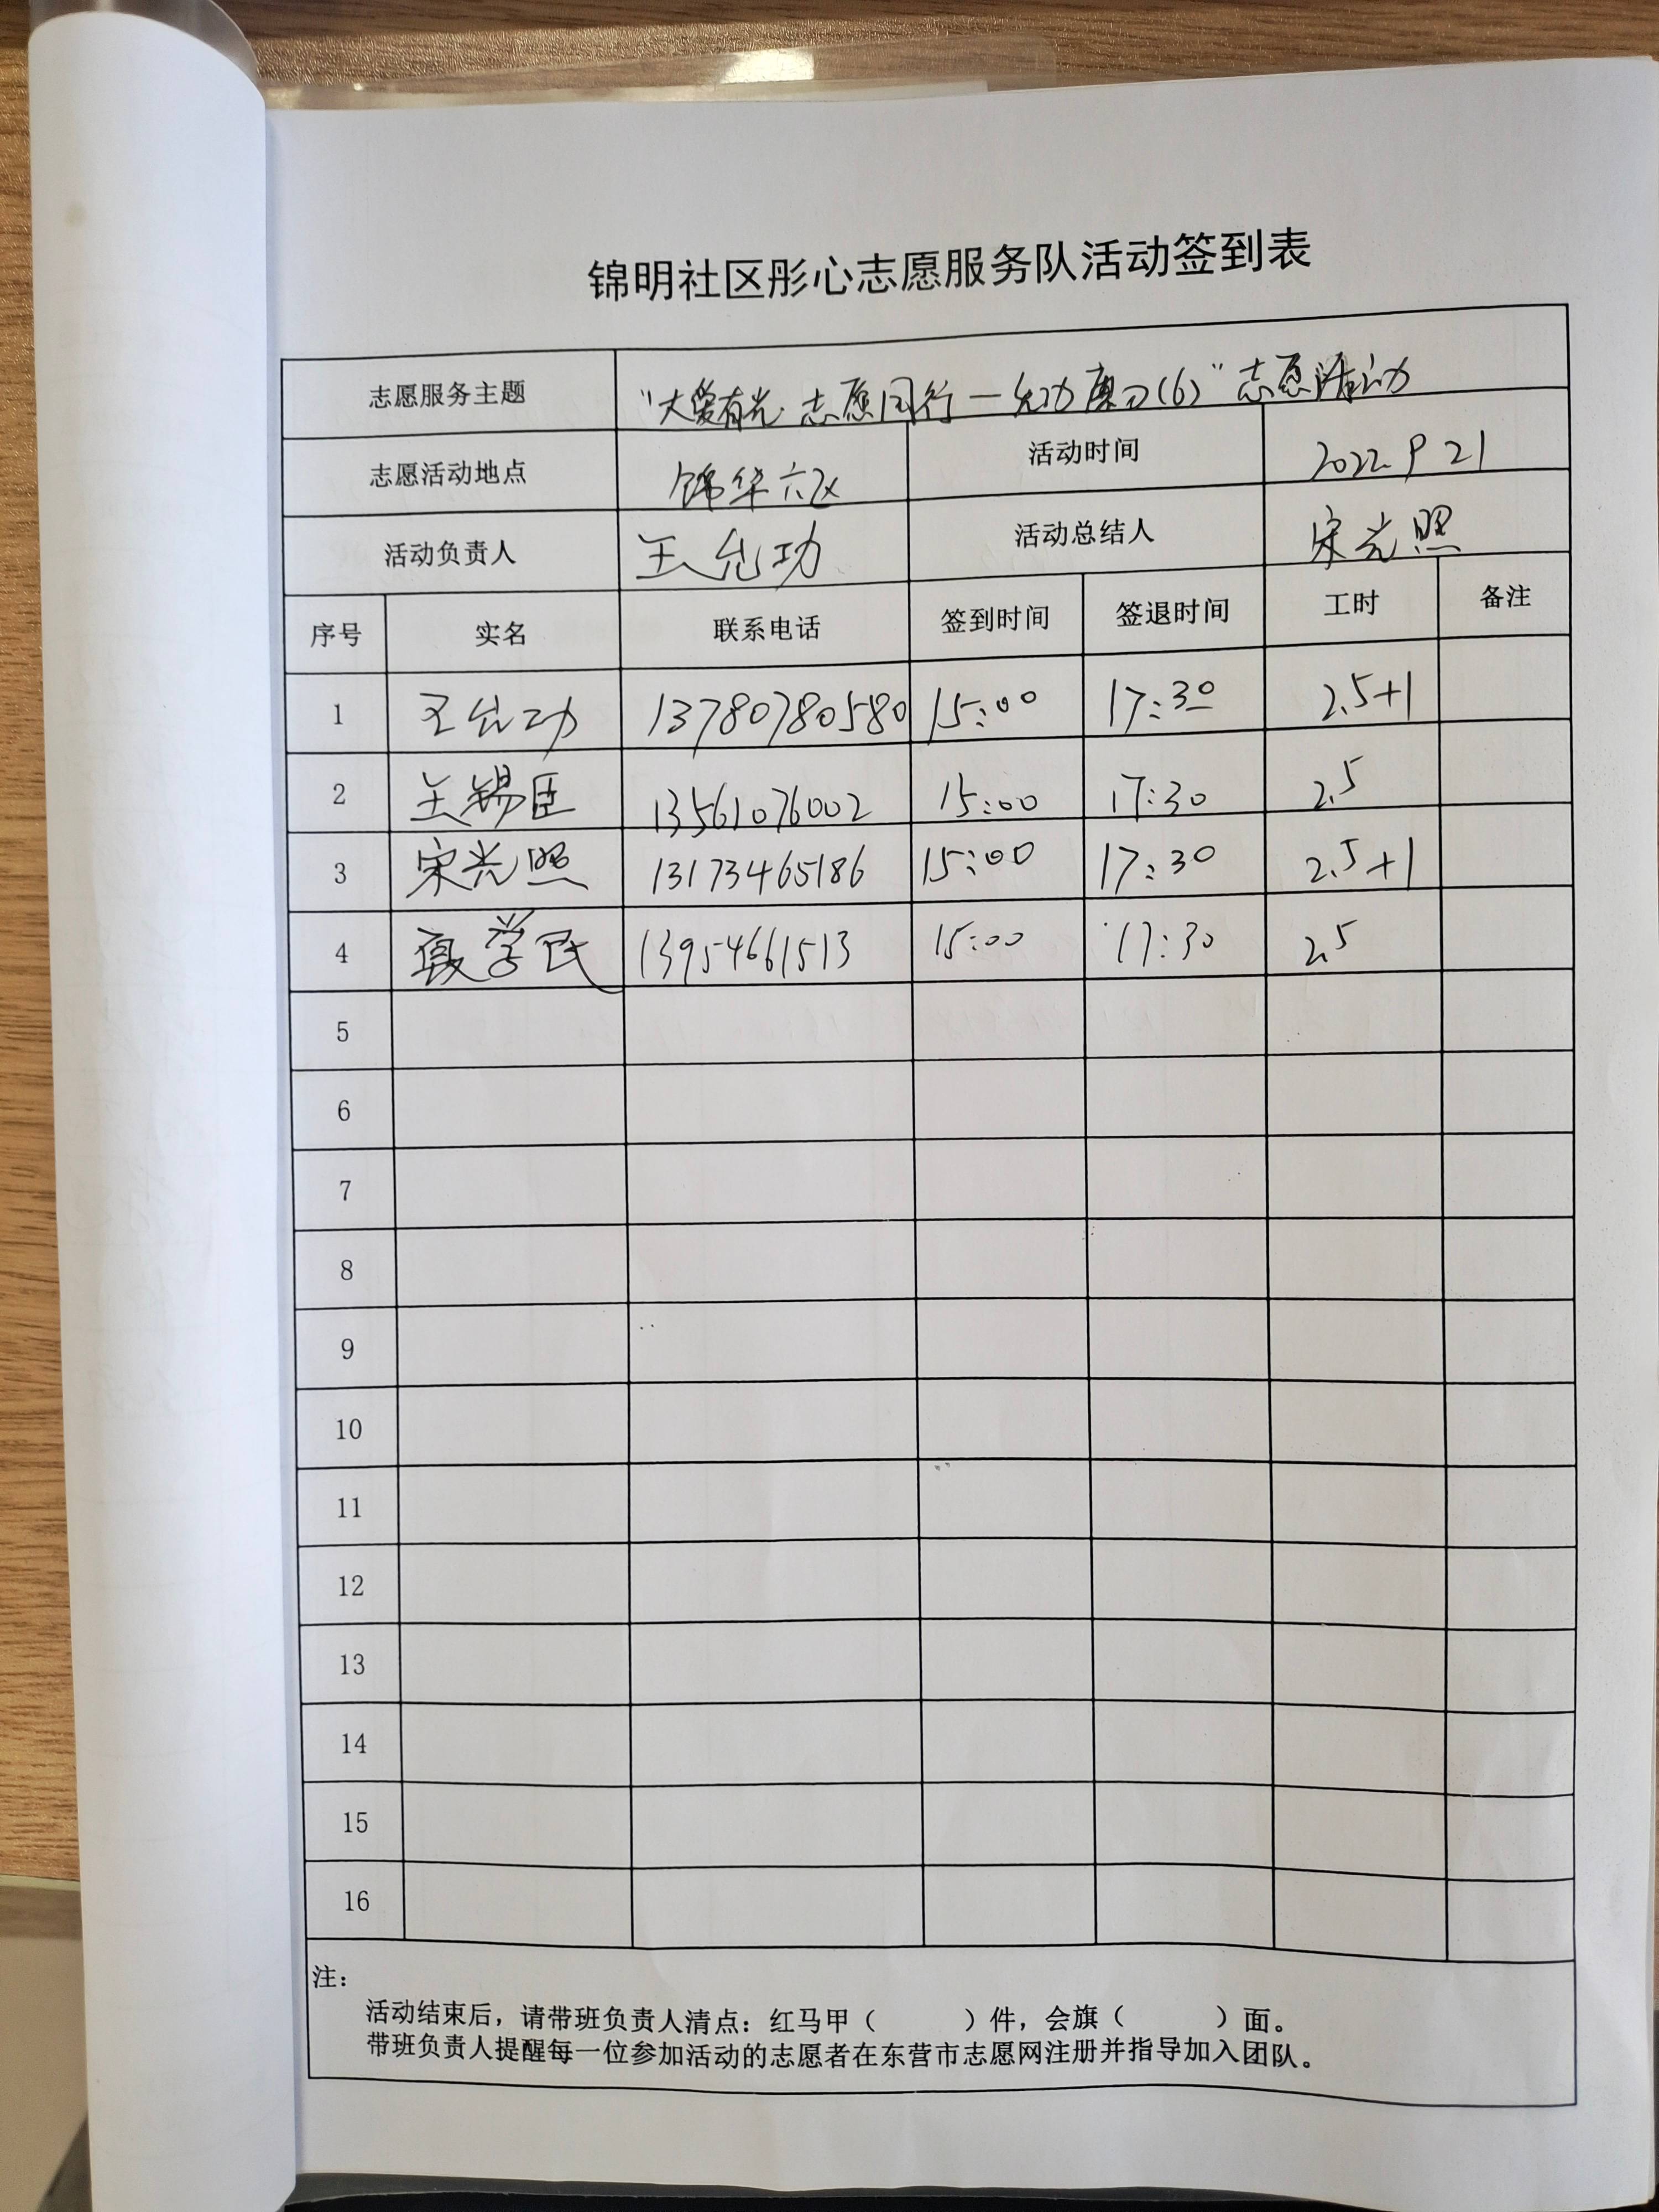 锦明社区彤心志愿服务队活动签到表
志愿服务主题 "大爱有光·志愿同行—允功磨刀(6)"志愿活动
志愿活动地点 锦华六区 活动时间 2022.9.21
活动负责人 王允功 活动总结人 宋光照
序号 实名 联系电话 签到时间 签退时间 工时 备注
1 王允功 13780780580 15:00 17:30 2.5+1
2 王锡臣 13561076002 15:00 17:30 2.5
3 宋光照 13173465186 15:00 17:30 2.5+1
4 聂学民 13954661513 15:00 17:30 2.5
5
6
7
8
9
10
11
12
13
14
15
16
注：
活动结束后，请带班负责人清点：红马甲（ ）件，会旗（ ）面。
带班负责人提醒每一位参加活动的志愿者在东营市志愿网注册并指导加入团队。